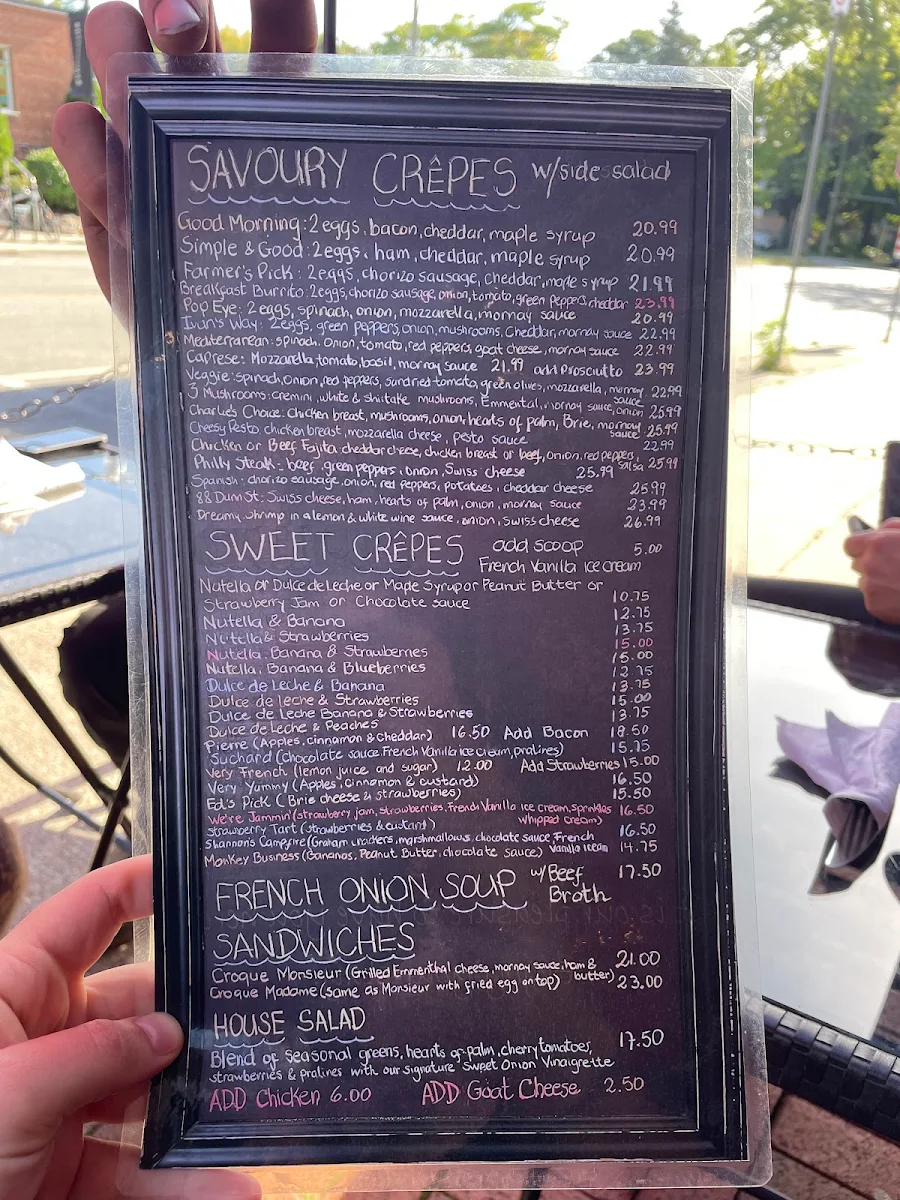 SAVOURY CRÊPES w/side salad
Good Morning: 2eggs, bacon, cheddar, maple syrup 20.99
Simple & Good: 2eggs, ham, cheddar, maple syrup 20.99
Farmer's Pick: 2eggs, chorizo sausage, cheddar, maple syrup 21.99
Breakfast Burrito: 2eggs, chorizo sausage, onion, tomato, green peppers, cheddar 23.99
Pop Eye: 2eggs, spinach, onion, mozzarella, mornay sauce 20.99
Ivan's Way: 2eggs, green peppers, onion, mushrooms, Cheddar, mornay sauce 22.99
Mediterranean: spinach, Onion, tomato, red peppers, goat cheese, mornay sauce 22.99
Caprese: Mozzarella, tomato, basil, mornay sauce 21.99 add Prosciutto 23.99
Veggie: spinach, Onion, red peppers, sundried tomato, green olives, mozzarella, mornay sauce 22.99
3 Mushrooms: cremini, white & shiitake mushrooms, Emmental, mornay sauce, onion 25.99
Charlie's Choice: chicken breast, mushrooms, onion, hearts of palm, Brie, mornay sauce 25.99
Cheesy Pesto chicken breast, mozzarella cheese, pesto sauce 22.99
Chicken or Beef Fajita cheddar cheese, chicken breast or beef, onion, red peppers, salsa 25.99
Philly Steak: beef, green peppers, onion, Swiss cheese 25.99
Spanish: chorizo sausage, onion, red peppers, potatoes, cheddar cheese 25.99
88 Dunn St: Swiss cheese, ham, hearts of palm, onion, mornay sauce 23.99
Dreamy Shrimp in a lemon & white wine sauce, onion, Swiss cheese 26.99
SWEET CRÊPES add scoop 5.00
French Vanilla ice cream
Nutella or Dulce de Leche or Maple Syrup or Peanut Butter or
Strawberry Jam or Chocolate sauce 10.75
Nutella & Banana 12.75
Nutella & Strawberries 13.75
Nutella, Banana & Strawberries 15.00
Nutella, Banana & Blueberries 15.00
Dulce de Leche & Banana 12.75
Dulce de leche & Strawberries 13.75
Dulce de Leche Banana & Strawberries 15.00
Dulce de Leche & Peaches 13.75
Pierre (Apples, cinnamon & Cheddar) 16.50 Add Bacon 18.50
Suchard (chocolate sauce, French Vanilla ice cream, pralines) 15.75
Very French (lemon juice and sugar) 12.00 Add Strawberries 15.00
Very Yummy (Apples, cinnamon & custard) 16.50
Ed's Pick (Brie cheese & strawberries) 15.50
We're Jammin' (strawberry jam, strawberries, French Vanilla ice cream, sprinkles 16.50
whipped cream)
Strawberry Tart (strawberries & custard)
Shannon's Campfire (Graham crackers, marshmallows, chocolate sauce, French Vanilla icecream 16.50
Monkey Business (Bananas, Peanut Butter, chocolate sauce) 14.75
FRENCH ONION SOUP w/Beef Broth 17.50
SANDWICHES
Croque Monsieur (Grilled Emmenthal Cheese, mornay sauce, ham & butter) 21.00
Croque Madame (same as Monsieur with fried egg on top) 23.00
HOUSE SALAD
Blend of Seasonal greens, hearts of palm, cherry tomatoes, 17.50
strawberries & pralines with our signature Sweet Onion Vinaigrette
ADD Chicken 6.00 ADD Goat Cheese 2.50